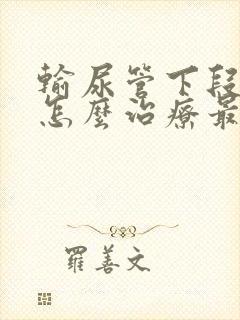 輸尿管下段
怎麼治療最
羅善文